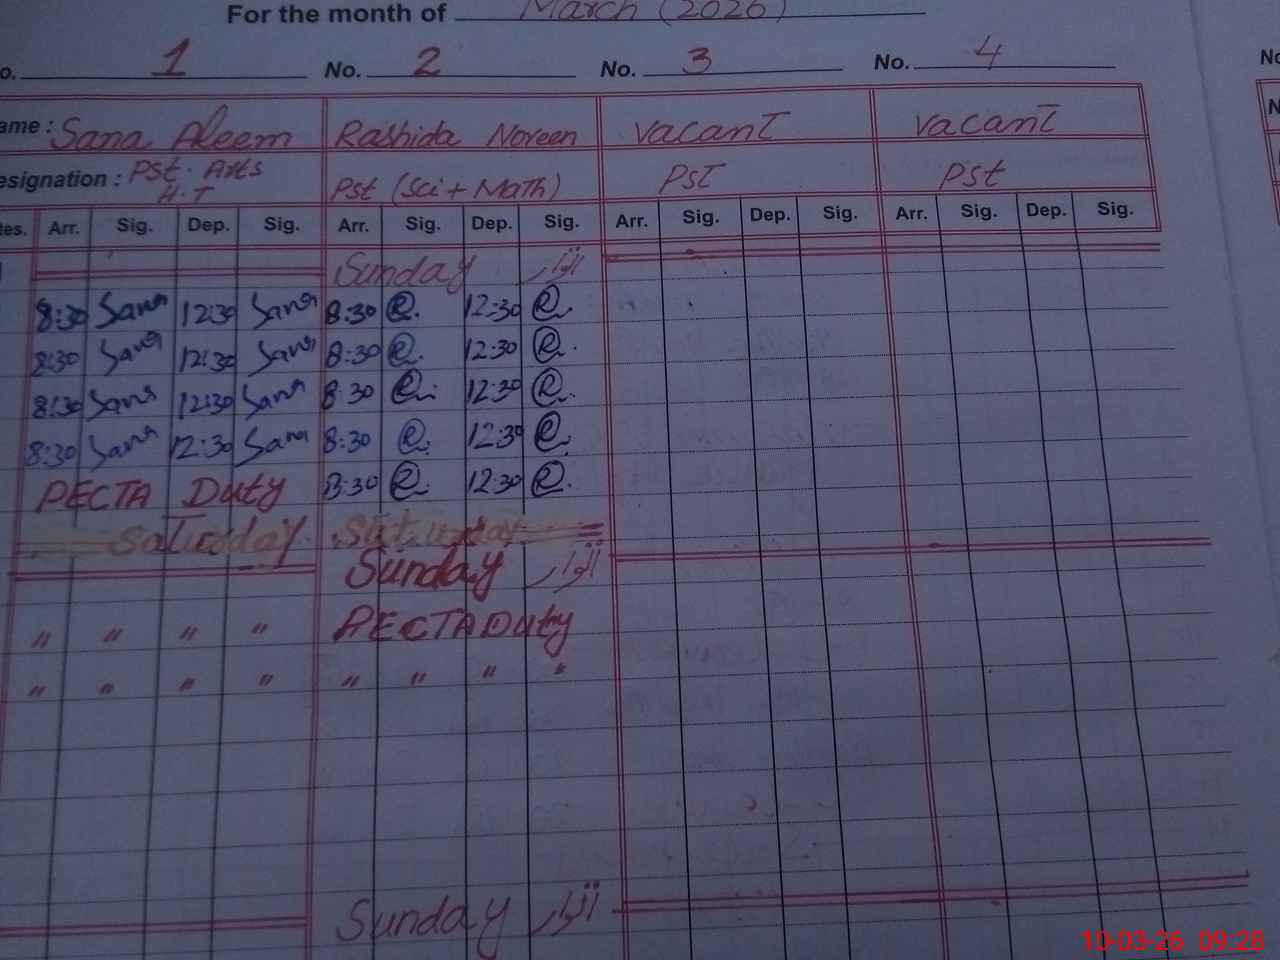 For the month of March (2026)
o. 1 No. 2 No. 3 No. 4 No
ame : Sana Aleem Rashida Noreen vacant vacant N
esignation : Pst. Arts
H.T Pst (Sci + Math) Pst Pst
tes. Arr. Sig. Dep. Sig. Arr. Sig. Dep. Sig. Arr. Sig. Dep. Sig. Arr. Sig. Dep. Sig.
Sunday اتوار
8:30 Sana 12:30 Sana 8:30 12:30
8:30 Sana 12:30 Sana 8:30 12:30
8:30 Sana 12:30 Sana 8:30 12:30
8:30 Sana 12:30 Sana 8:30 12:30
PECTA Duty 8:30 12:30
Saturday Saturday
Sunday اتوار
" " " " PECTA Duty
" " " " " " " "
Sunday اتوار
10-03-26 09:28